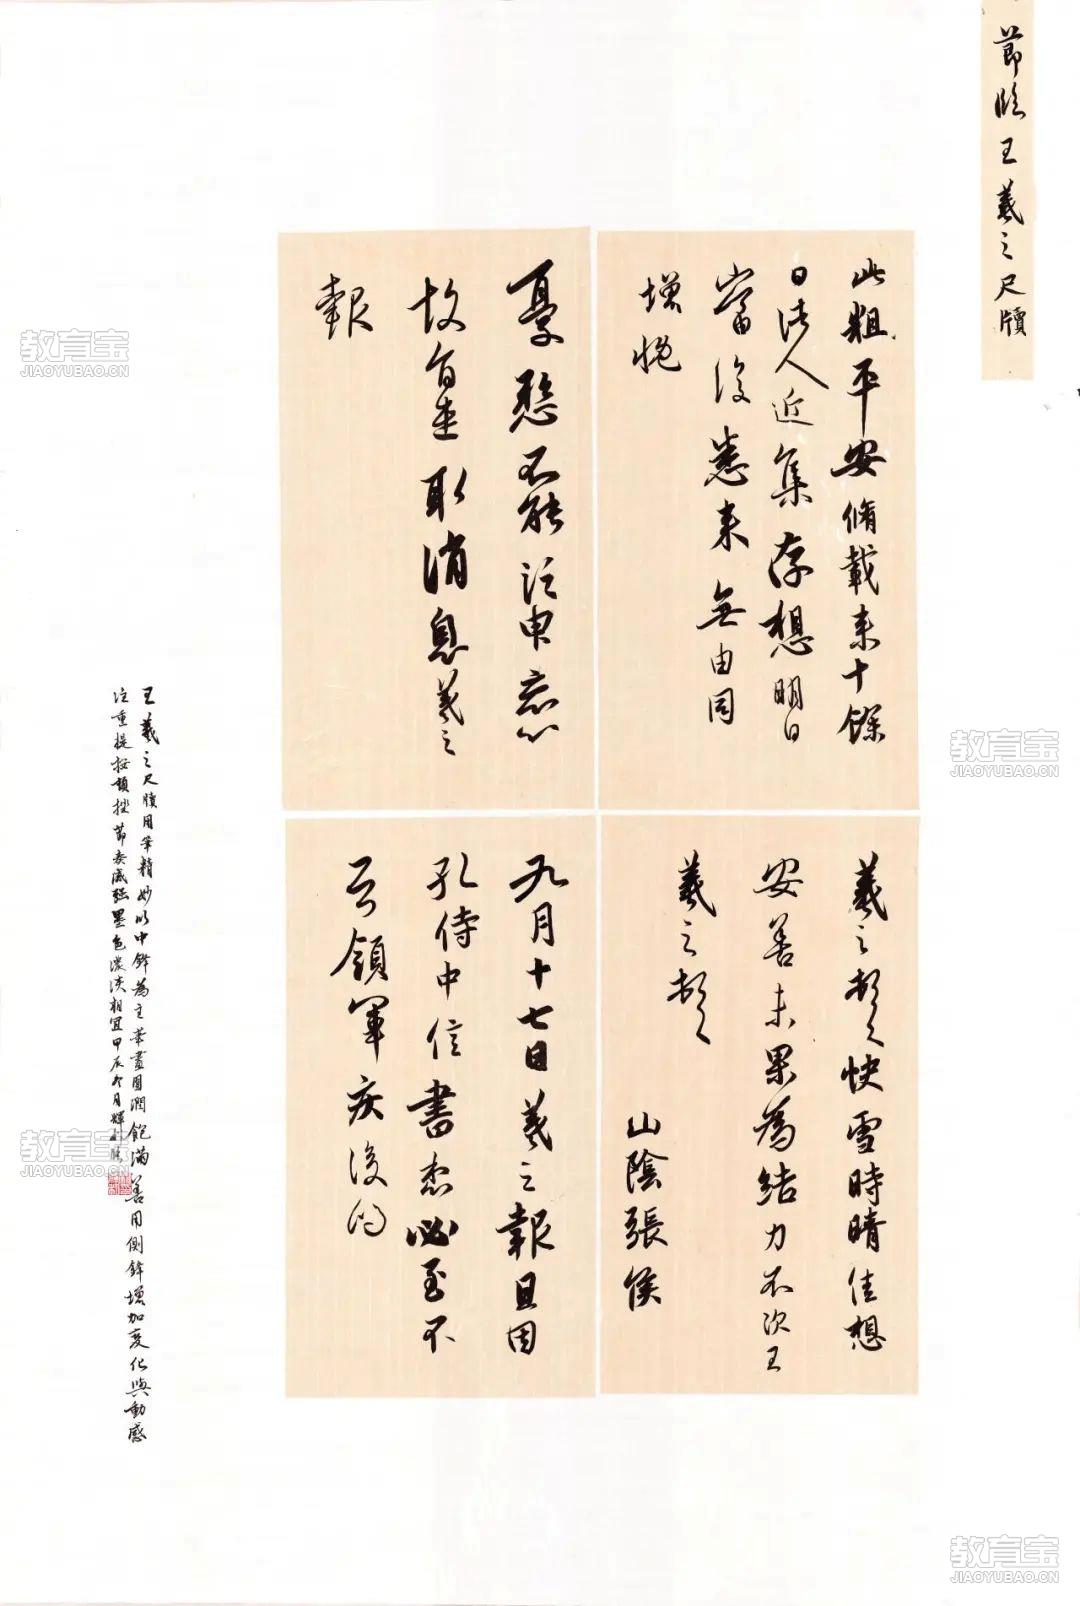 節臨王羲之尺牘
此粗平安脩載来十餘
日諸人近集存想明日
當復悉来無由同
增慨
憂愁不能
申
故旨遣取消息羲之
報
羲之頓首快雪時晴佳想
安善未果為結力不次王
羲之頓首
山陰張侯
九月十七日羲之報且因
孔侍中信書想必至不
知領軍疾後問
王羲之尺牘用筆精妙以中鋒為主筆畫圓潤飽滿善用側鋒增加變化與動感
注重提按頓挫節奏感強墨色濃淡相宜甲辰冬月輝
教育宝
JIAOYUBAO.CN
教育宝
JIAOYUBAO.CN
教育宝
JIAOYUBAO.CN
教育宝
JIAOYUBAO.CN